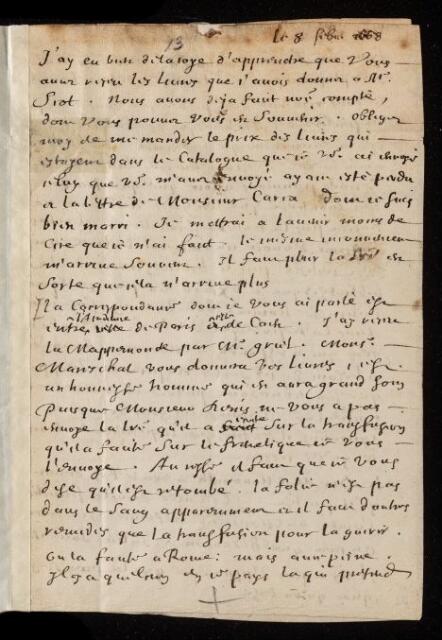 13
le 8 febr 1668
J'ay eu bien de la joye d'apprendre que Vous
avez receu les livres que j'avois donné à Mr.
Siot. Nous avons deja faict nre compte,
dont Vous pouvez Vous en Souvenir. obligez
moy de me mander le prix des livres qui
estoyent dans le Catalogue que ie vs. ai envoyé
celuy que vs. m'avez envoyé ayant esté perdu
et la lettre de Monsieur Carca dont ie suis
bien marri. Je mettrai a l'avenir moins de
Cire que ie n'ai fait. le mesme inconvenient
m'arrive Souvent. Il faut plier la Lre en
Sorte que cela n'arrive plus
La Correspondance dont ie Vous ai parlé est
entre l'Academie de Paris et celle de Caen. J'ay receu
la Mappemonde par Mr. gruel. Monsr.
Mareschal vous donnera vos livres, c'est
un honneste homme qui en aura grand soin
Puisque Monsieur Denis ne vous a pas
envoyé la Lre qu'il a escrite sur la transfusion
qu'il a faite sur le frenetique ie vous
l'envoye. Au reste il faut que ie vous
dise qu'il est retombé. la folie n'est pas
dans le Sang apparemment et il faut d'autres
remedes que la transfusion pour la guerir.
On l'a faite a Rome: mais
Il y a quelcun en ce pays la qui pretend